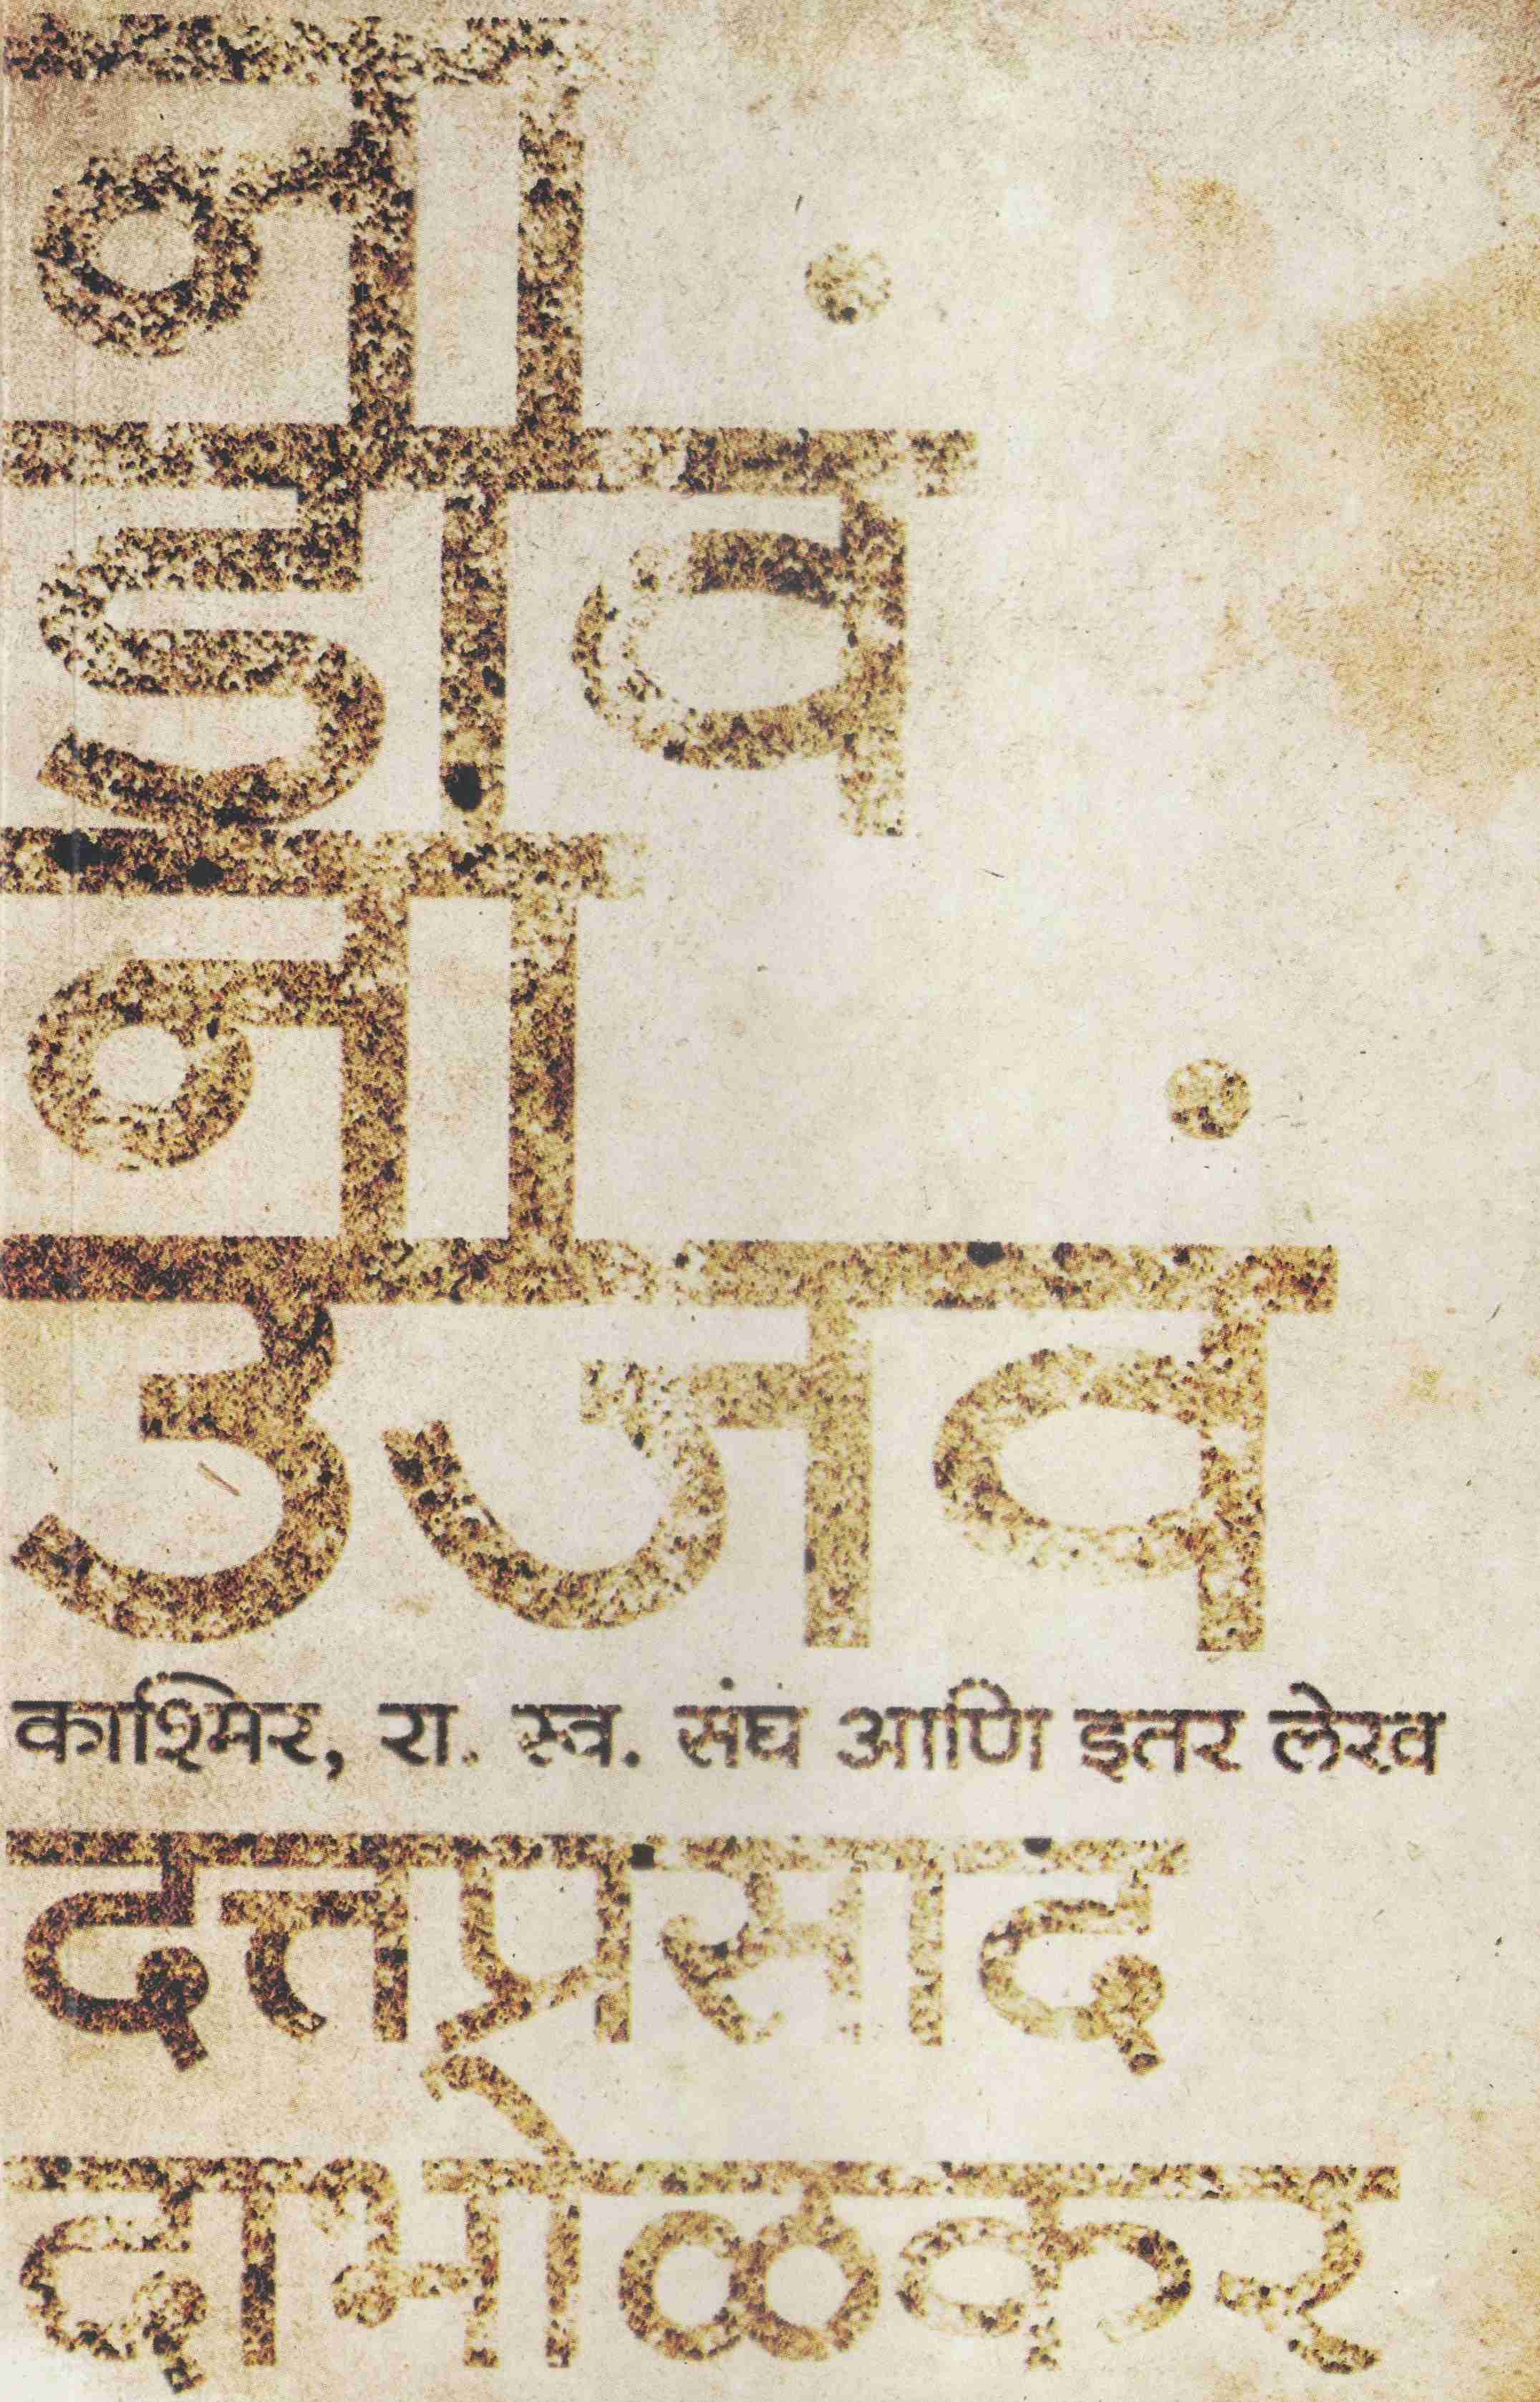 ना
डावं
ना
उजवं
काश्मिर, रा. स्व. संघ आणि इतर लेख
दत्तप्रसाद
दाभोळकर